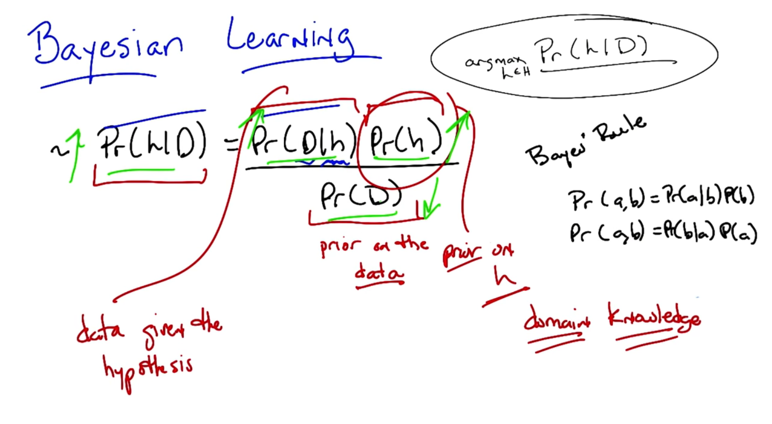 Bayesian Learning
argmax h∈H Pr(h|D)
~ Pr(h|D) = Pr(D|h) Pr(h)
Pr(D)
Bayes' Rule
Pr(a,b) = Pr(a|b)P(b)
Pr(a,b) = Pr(b|a)P(a)
prior on the
data
prior on
h
data given the
hypothesis
domain knowledge